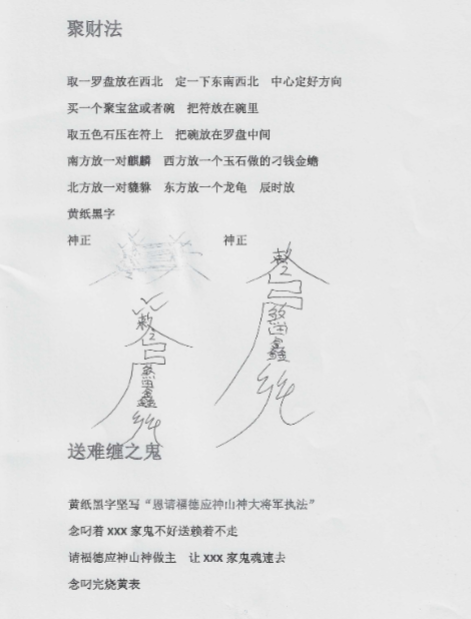 聚财法
取一罗盘放在西北 定一下东南西北 中心定好方向
买一个聚宝盆或者碗 把符放在碗里
取五色石压在符上 把碗放在罗盘中间
南方放一对麒麟 西方放一个玉石做的刁钱金蟾
北方放一对貔貅 东方放一个龙龟 辰时放
黄纸黑字
神正 神正
送难缠之鬼
黄纸黑字坚写“恩请福德应神山神大将军执法”
念叼着 xxx 家鬼不好送赖着不走
请福德应神山神做主 让 xxx 家鬼魂速去
念叼完烧黄表